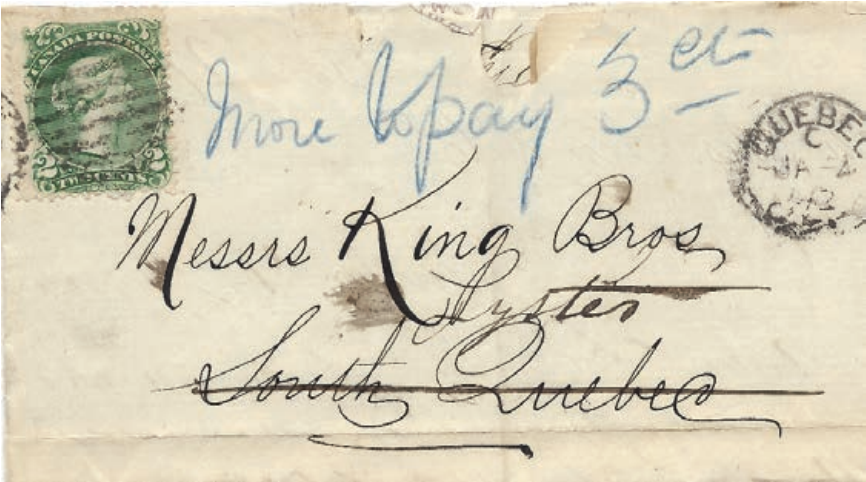 CANADA POSTAGE
2 TWO CENTS 2
More to pay 3 cts
QUEBEC
C
JA
Messrs King Bros
Lyster
South Quebec